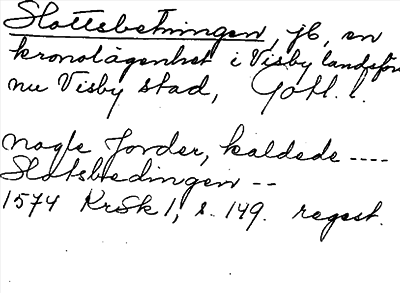 Slottsbetningen, jb, en
kronolägenhet i Visby landsförs
nu Visby stad, Gotl. l.
nogle Jorder, kaldede ----
Slotsbedingen --
1574 KrSk 1, s. 149. regest.